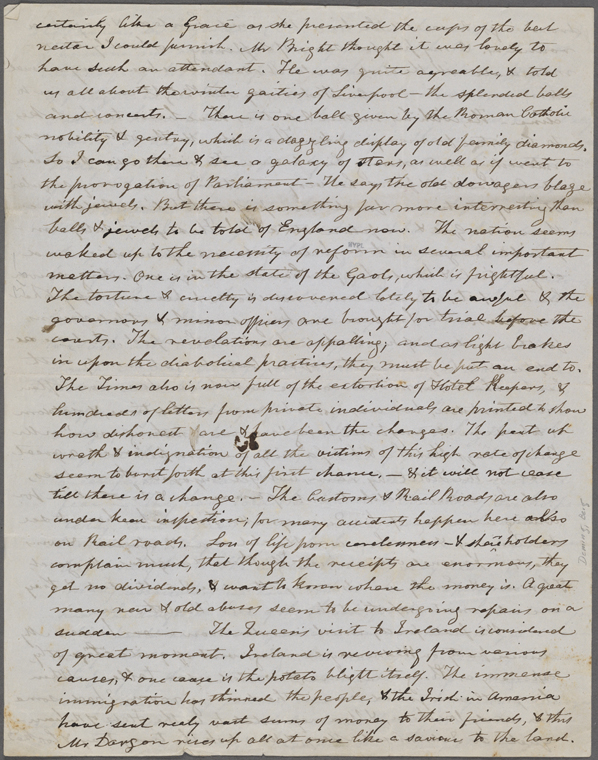 certainly like a Grace as she presented the cups of the best
nectar I could furnish. Mr Bright thought it was lovely to
have such an attendant. He was quite agreeable, & told
us all about the winter gaities of Liverpool — the splended balls
and concerts. — There is one ball given by the Roman Catholic
nobility & gentry, which is a dazzling display of old family diamonds.
So I can go there & see a galaxy of stars, as well as if went to
the prorogation of Parliament — He says the old dowagers blaze
with jewels. But there is something far more interesting than
balls & jewels to be told of England now. The nation seems
waked up to the necessity of reform in several important
matters. One is in the state of the Gaols, which is frightful.
The torture & cruelty is discovered lately to be awful & the
governors & minor officers are brought for trial before the
courts. The revelations are appalling; and as light breaks
in upon the diabolical practices, they must be put an end to.
The Times also is now full of the extortion of Hotel Keepers, &
hundreds of letters from private individuals are printed to show
how dishonest are & have been the charges. The pent up
wrath & indignation of all the victims of this high rate of charge
seem to burst forth at this first chance, — & it will not cease
till there is a change. — The Customs & Rail Roads, are also
under keen inspection; for many accidents happen here also
on Rail roads. Loss of life from carelessness — & shareholders
complain much, that though the receipts are enormous, they
get no dividends, & want to know where the money is. A great
many new & old abuses seem to be undergoing repairs on a
sudden — The Queen's visit to Ireland is considered
of great moment. Ireland is reviving from various
causes, & one cause is the potato blight itself. The immense
immigration has thinned the people, & the Irish in America
have sent really vast sums of money to their friends, & this
Mr Dargan rises up all at once like a saviour to the land.